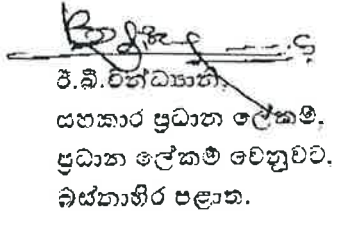 ඊ.බී.වින්ධ්‍යානි,
සහකාර ප්‍රධාන ලේකම්,
ප්‍රධාන ලේකම් වෙනුවට,
බස්නාහිර පළාත.